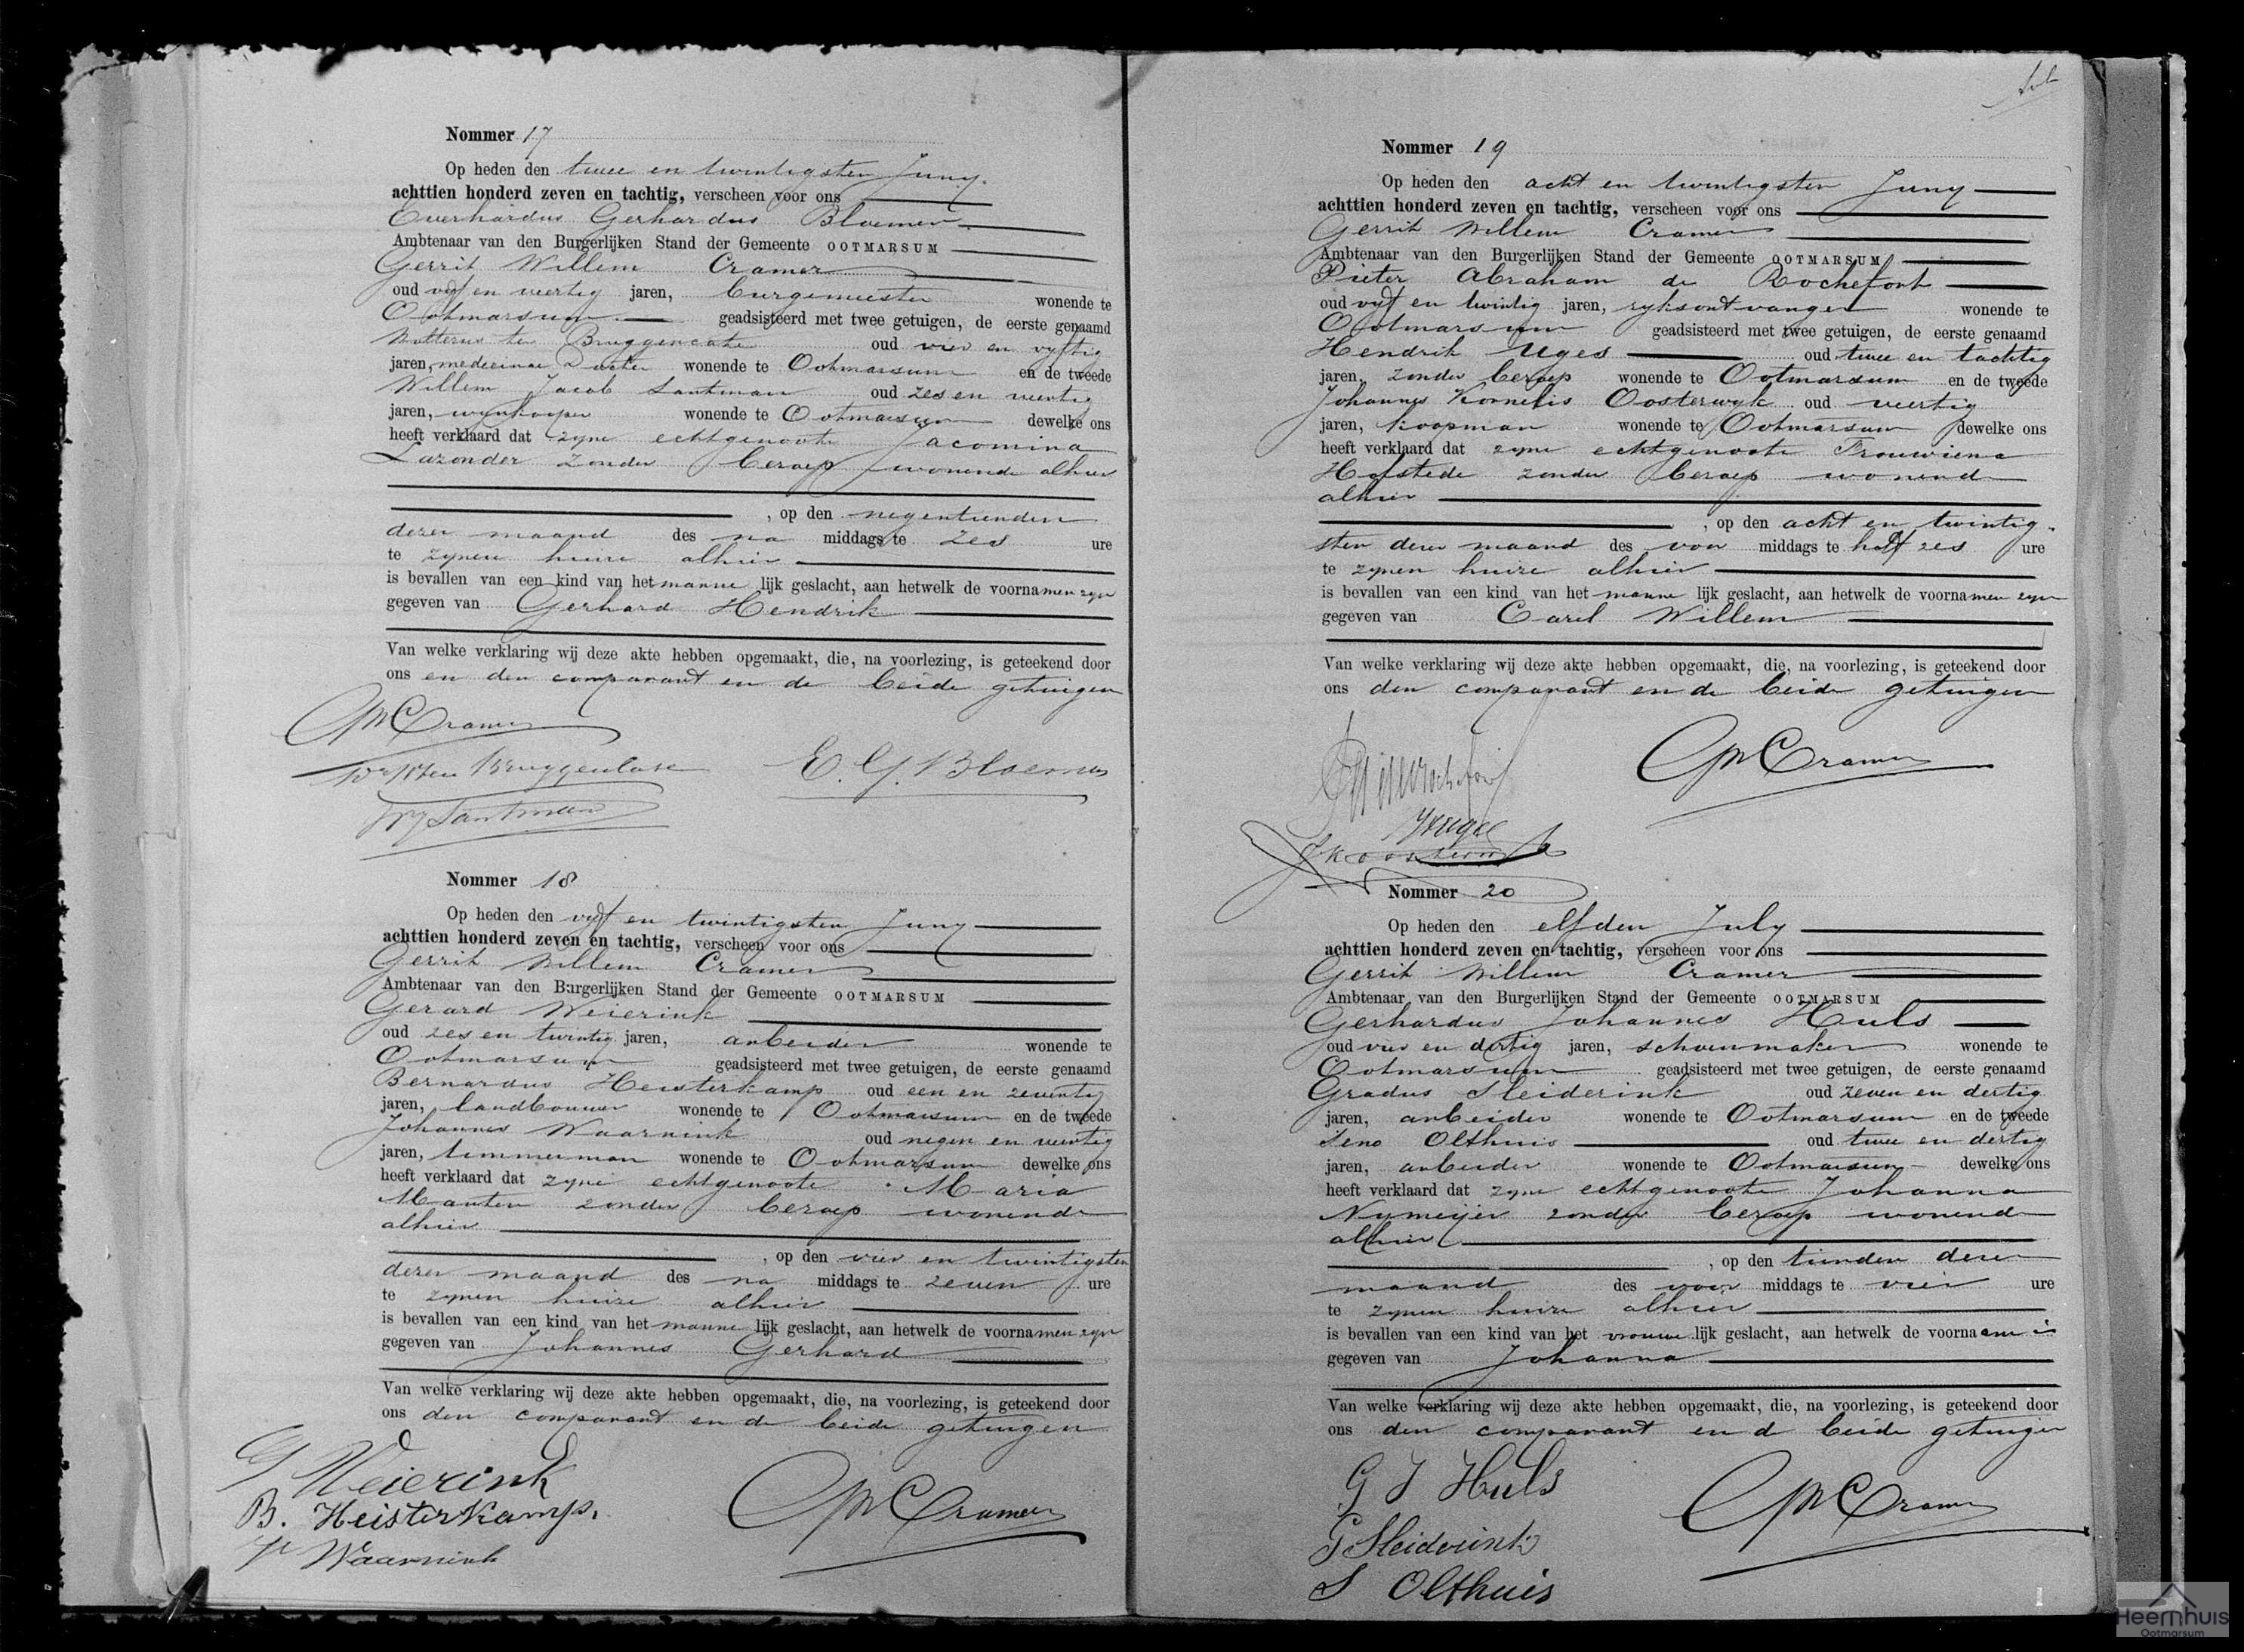 Nommer 17
Op heden den twee en twintigsten Juny
achttien honderd zeven en tachtig, verscheen voor ons
Everhardus Gerhardus Bloemen
Ambtenaar van den Burgerlijken Stand der Gemeente OOTMARSUM
Gerrit Willem Cramer
oud vyf en veertig jaren, burgemeester wonende te
Ootmarsum geadsisteerd met twee getuigen, de eerste genaamd
Wolterus ten Bruggencate oud vier en vyftig
jaren, medicinae Doctor wonende te Ootmarsum en de tweede
Willem Jacob Santman oud zes en veertig
jaren, wynkooper wonende te Ootmarsum dewelke ons
heeft verklaard dat zyne echtgenoote Jacomina
Lazonder zonder beroep wonende alhier
, op den negentienden
dezer maand des na middags te zes ure
te zynen huize alhier
is bevallen van een kind van het manne lijk geslacht, aan hetwelk de voornamen zyn
gegeven van Gerhard Hendrik
Van welke verklaring wij deze akte hebben opgemaakt, die, na voorlezing, is geteekend door
ons en den comparant en de beide getuigen
GWCramer
ten Bruggencate E. G. Bloemen
WJSantman
Nommer 18
Op heden den vyf en twintigsten Juny
achttien honderd zeven en tachtig, verscheen voor ons
Gerrit Willem Cramer
Ambtenaar van den Burgerlijken Stand der Gemeente OOTMARSUM
Gerard Weierink
oud zes en twintig jaren, arbeider wonende te
Ootmarsum geadsisteerd met twee getuigen, de eerste genaamd
Bernardus Heisterkamp oud een en zeventig
jaren, landbouwer wonende te Ootmarsum en de tweede
Johannes Waarnink oud negen en veertig
jaren, timmerman wonende te Ootmarsum dewelke ons
heeft verklaard dat zyne echtgenoote Maria
Manten zonder beroep wonende
alhier
, op den vier en twintigsten
dezer maand des na middags te zeven ure
te zynen huize alhier
is bevallen van een kind van het manne lijk geslacht, aan hetwelk de voornamen zyn
gegeven van Johannes Gerhard
Van welke verklaring wij deze akte hebben opgemaakt, die, na voorlezing, is geteekend door
ons den comparant en de beide getuigen
G Weierink
B. Heisterkamp. GWCramer
Waarnink
Nommer 19
Op heden den acht en twintigsten Juny
achttien honderd zeven en tachtig, verscheen voor ons
Gerrit Willem Cramer
Ambtenaar van den Burgerlijken Stand der Gemeente OOTMARSUM
Pieter Abraham de Rochefort
oud vyf en twintig jaren, ryksontvanger wonende te
Ootmarsum geadsisteerd met twee getuigen, de eerste genaamd
Hendrik Uges oud twee en tachtig
jaren, zonder beroep wonende te Ootmarsum en de tweede
Johannes Kornelis Oosterwyk oud veertig
jaren, koopman wonende te Ootmarsum dewelke ons
heeft verklaard dat zyne echtgenoote Trouwiena
Hofstede zonder beroep wonend
alhier
, op den acht en twintig-
sten dezer maand des voor middags te half zes ure
te zynen huize alhier
is bevallen van een kind van het manne lijk geslacht, aan hetwelk de voornamen zyn
gegeven van Carel Willem
Van welke verklaring wij deze akte hebben opgemaakt, die, na voorlezing, is geteekend door
ons den comparant en de beide getuigen
GWCramer
Nommer 20
Op heden den elfden July
achttien honderd zeven en tachtig, verscheen voor ons
Gerrit Willem Cramer
Ambtenaar van den Burgerlijken Stand der Gemeente OOTMARSUM
Gerhardus Johannes Huls
oud vier en dertig jaren, schoenmaker wonende te
Ootmarsum geadsisteerd met twee getuigen, de eerste genaamd
Gradus Sleiderink oud zeven en dertig
jaren, arbeider wonende te Ootmarsum en de tweede
Seno Olthuis oud twee en dertig
jaren, arbeider wonende te Ootmarsum dewelke ons
heeft verklaard dat zyne echtgenoote Johanna
Nymeijer zonder beroep wonend
alhier
, op den tienden dezer
maand des voor middags te vier ure
te zynen huize alhier
is bevallen van een kind van het vrouwe lijk geslacht, aan hetwelk de voornaam is
gegeven van Johanna
Van welke verklaring wij deze akte hebben opgemaakt, die, na voorlezing, is geteekend door
ons den comparant en d beide getuigen
G J Huls GWCramer
G Sleiderink
S Olthuis
Heemhuis
Ootmarsum